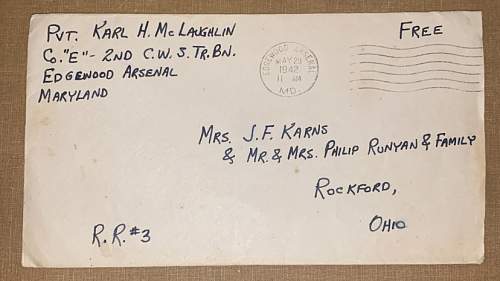 Pvt. Karl H. McLaughlin
Co. "E" - 2nd C.W.S. Tr. Bn.
Edgewood Arsenal
Maryland
Free
EDGEWOOD ARSENAL
MAY 29
1942
11 AM
MD.
Mrs. J.F. Karns
& Mr. & Mrs. Philip Runyan & Family
Rockford,
Ohio
R.R. #3